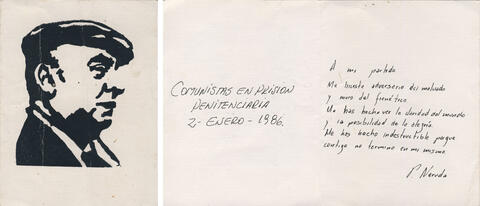 COMUNISTAS EN PRISION
PENITENCIARIA
2- ENERO - 1986.
A mi partido
Me hiciste adversario del malvado
y muro del frenético
Me has hecho ver la claridad del mundo
y la posibilidad de la alegría
Me has hecho indestructible porque
contigo no termino en mi mismo
P. Neruda